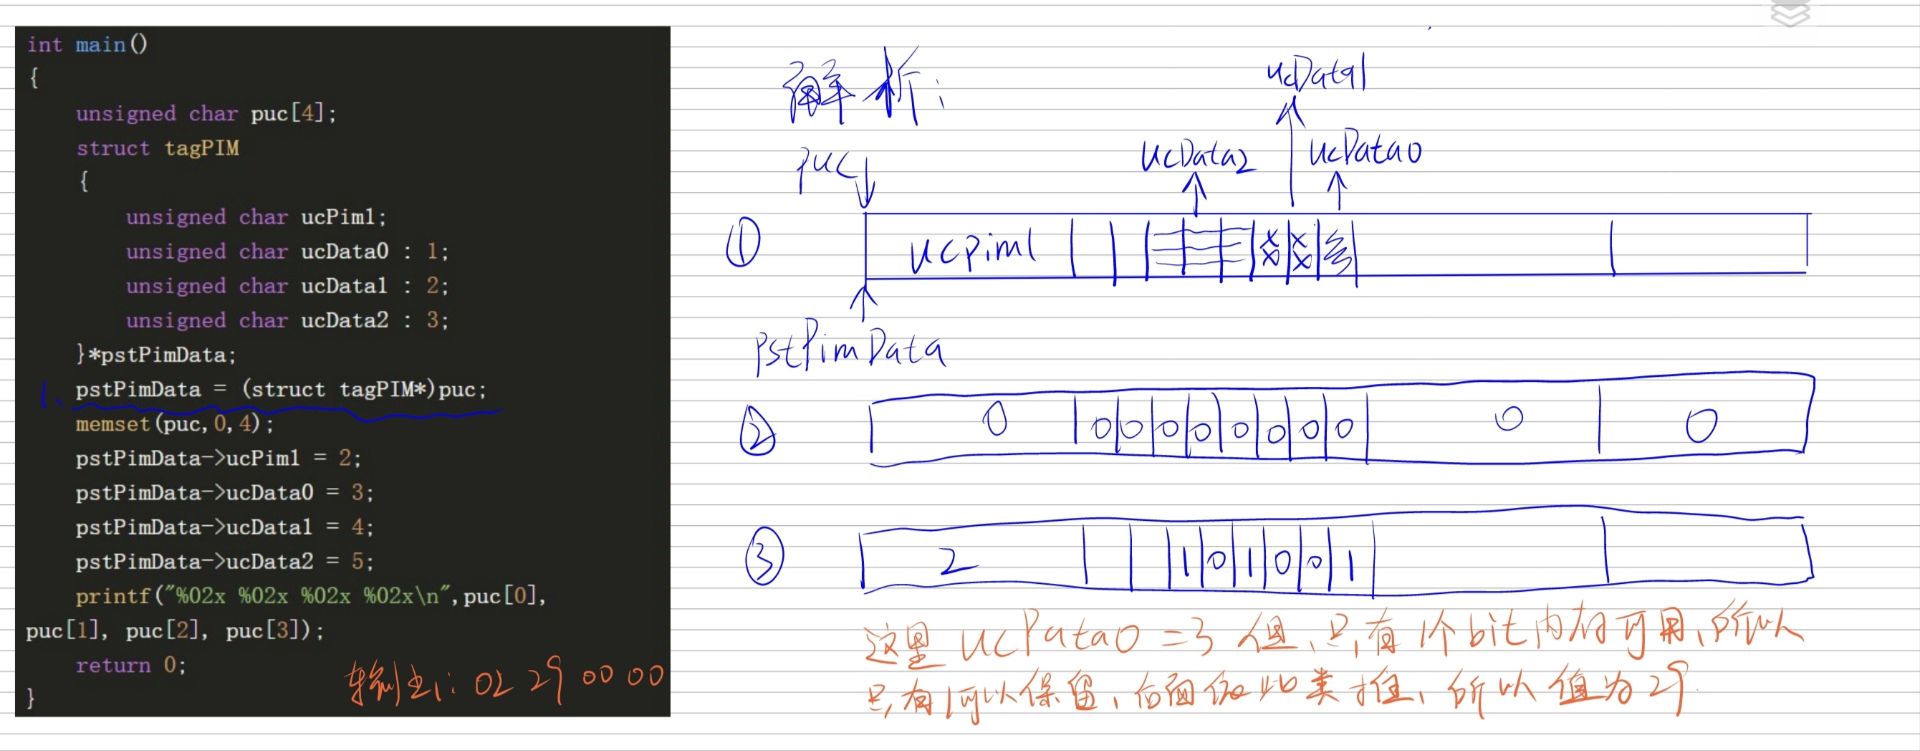 int main()
{
unsigned char puc[4];
struct tagPIM
{
unsigned char ucPim1;
unsigned char ucData0 : 1;
unsigned char ucData1 : 2;
unsigned char ucData2 : 3;
}*pstPimData;
1、 pstPimData = (struct tagPIM*)puc;
memset(puc,0,4);
pstPimData->ucPim1 = 2;
pstPimData->ucData0 = 3;
pstPimData->ucData1 = 4;
pstPimData->ucData2 = 5;
printf("%02x %02x %02x %02x\n",puc[0],
puc[1], puc[2], puc[3]);
return 0;
}
输出: 02 29 00 00
解析:
ucData1
puc
ucData2 ucData0
① ucPim1
pstPimData
② 0 0 0 0 0 0 0 0 0 0 0
③ 2 1 0 1 0 0 1
这里 ucData0 =3 但,只有1个bit内存可用,所以
只有1可以保留,后面依此类推,所以值为29